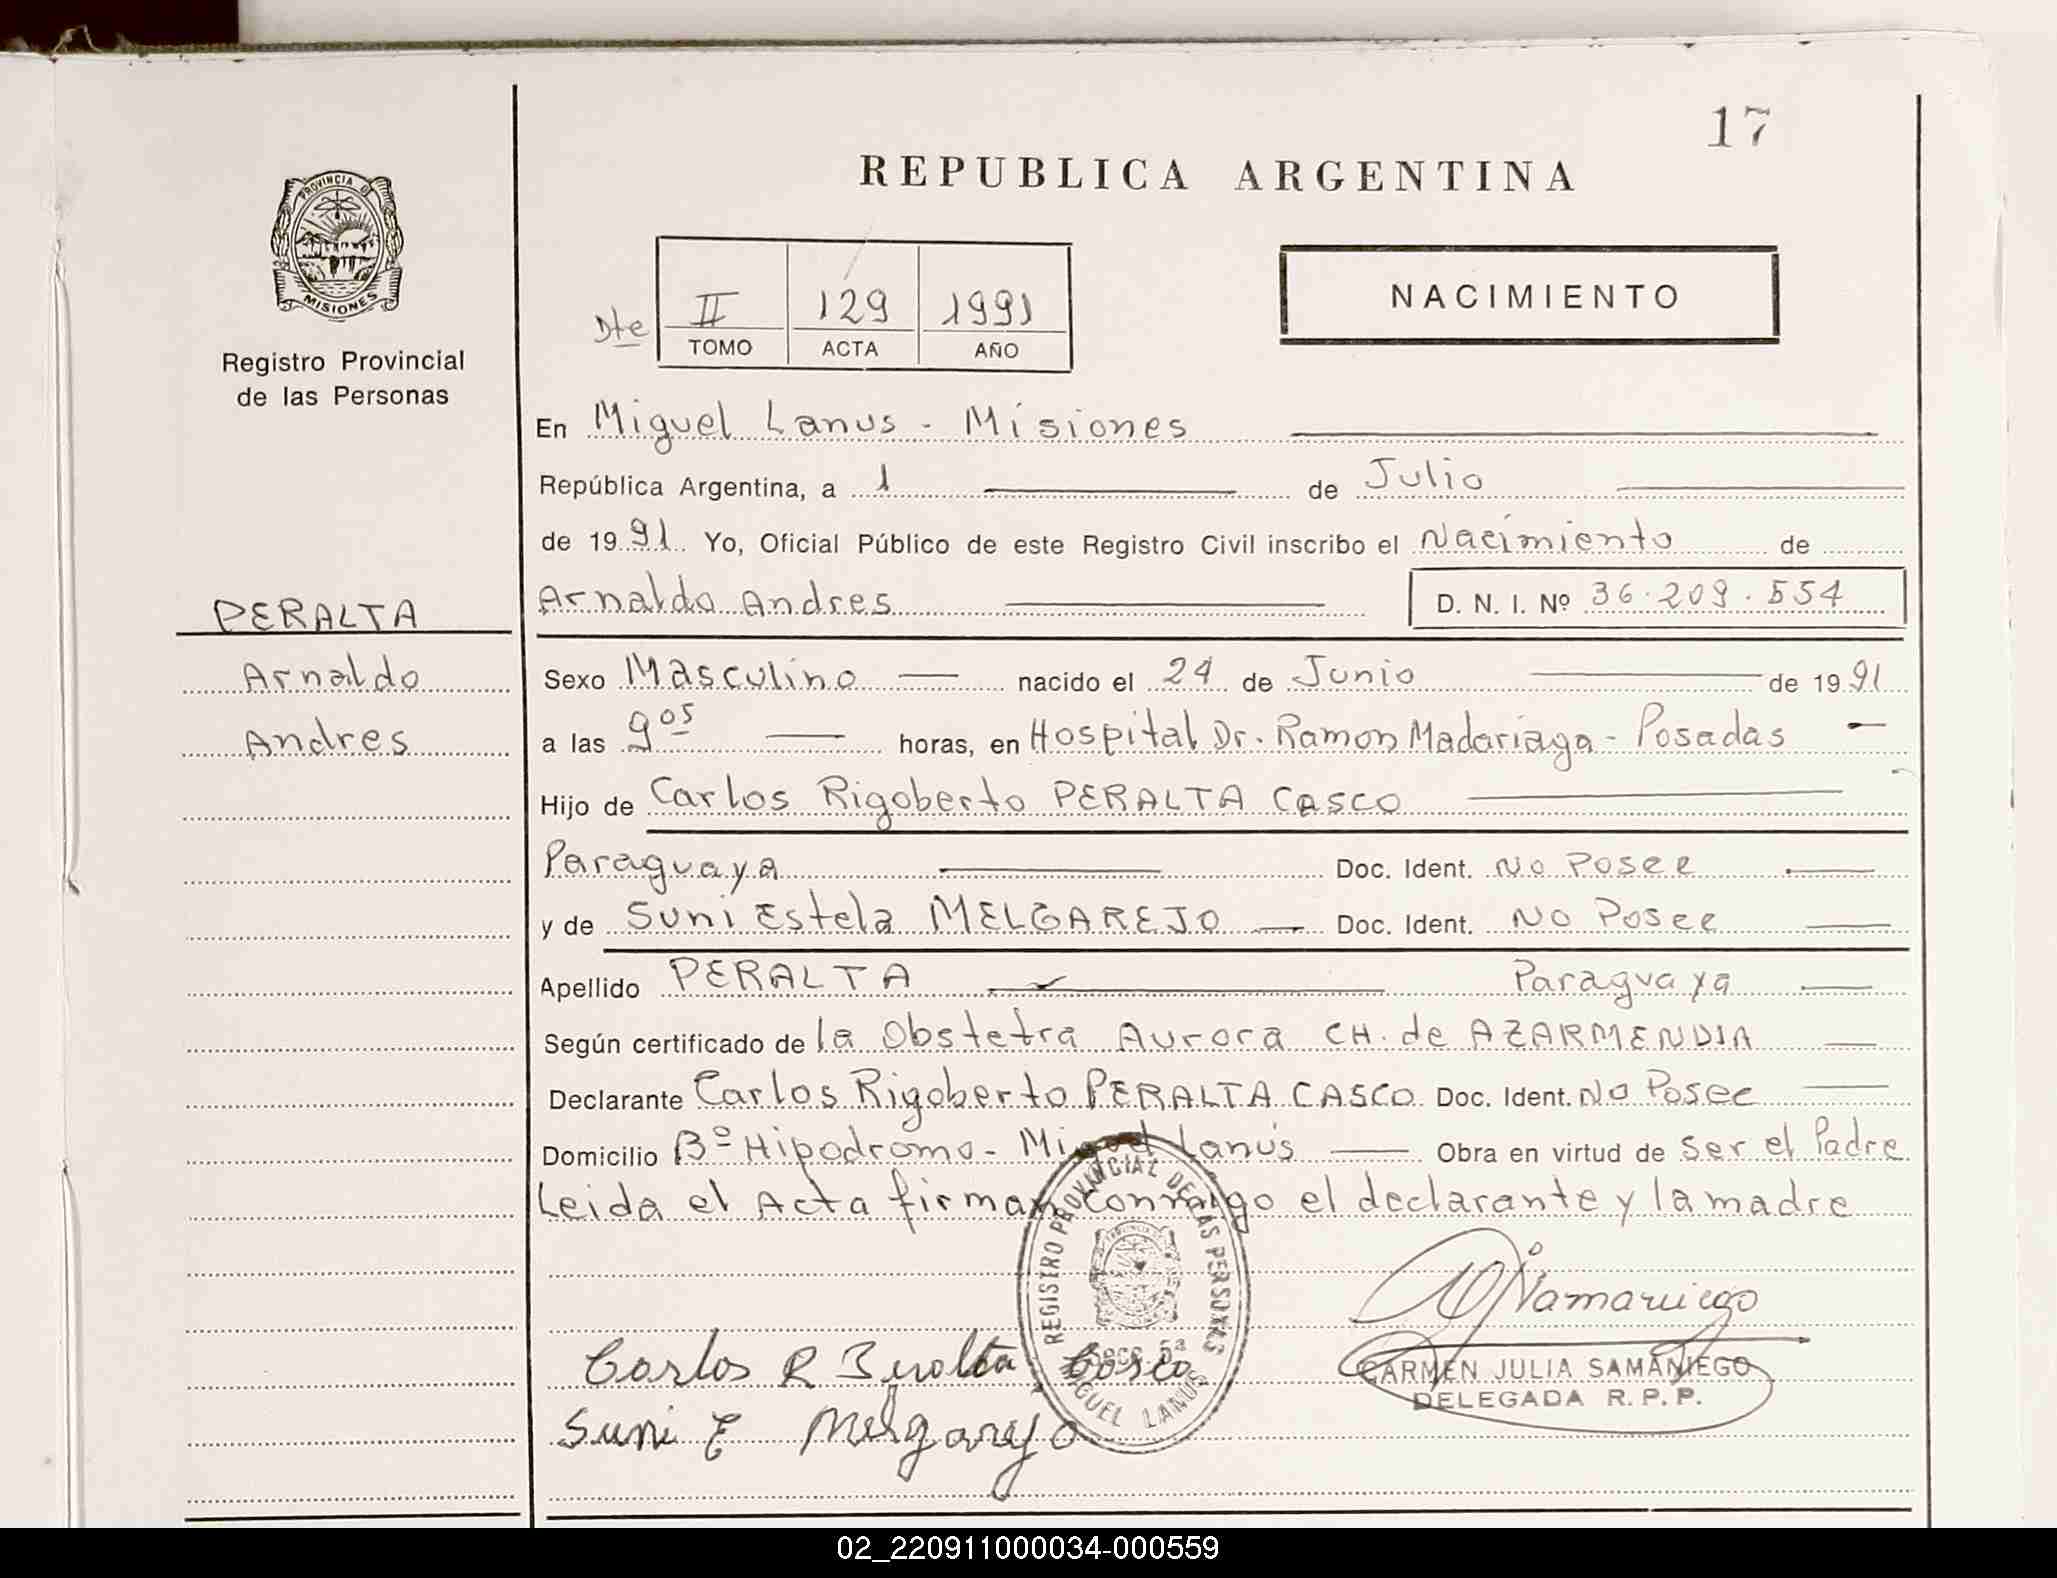 17
REPUBLICA ARGENTINA
PROVINCIA DE
MISIONES
Registro Provincial
de las Personas
Dte II 129 1991
TOMO ACTA AÑO
NACIMIENTO
En Miguel Lanus - Misiones
República Argentina, a 1 de Julio
de 1991 Yo, Oficial Público de este Registro Civil inscribo el Nacimiento de
Arnaldo Andres D. N. I. Nº 36.209.554
PERALTA
Arnaldo
Andres
Sexo Masculino nacido el 24 de Junio de 1991
a las 9 05 horas, en Hospital Dr. Ramon Madariaga - Posadas
Hijo de Carlos Rigoberto PERALTA CASCO
Paraguaya Doc. Ident. No Posee
y de Suni Estela MELGAREJO Doc. Ident. No Posee
Apellido PERALTA Paraguaya
Según certificado de la Obstetra Aurora CH. de AZARMENDIA
Declarante Carlos Rigoberto PERALTA CASCO Doc. Ident. No Posee
Domicilio Bº Hipodromo - Miguel Lanús Obra en virtud de ser el Padre
Leida el Acta firman conmigo el declarante y la madre
REGISTRO PROVINCIAL DE LAS PERSONAS
Secc. 5ª
MIGUEL LANUS
Carlos R Peralta Casco
Suni E Melgarejo
Samaniego
CARMEN JULIA SAMANIEGO
DELEGADA R.P.P.
02_220911000034-000559